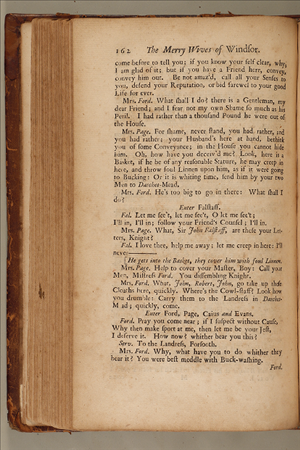 162 The Merry Wives of Windsor.
come before to tell you; if you know your self clear, why,
I am glad of it; but if you have a Friend here, convey,
convey him out. Be not amaz'd, call all your Senses to
you, defend your Reputation, or bid farewel to your good
Life for ever.
Mrs. Ford. What shall I do? there is a Gentleman, my
dear Friend; and I fear not my own Shame so much as his
Peril. I had rather than a thousand Pound he were out of
the House.
Mrs. Page. For shame, never stand, you had rather, and
you had rather; your Husband's here at hand, bethink
you of some Conveyance; in the House you cannot hide
him. Oh, how have you deceiv'd me? Look, here is a
Basket, if he be of any reasonable Stature, he may creep in
here, and throw foul Linnen upon him, as if it were going
to Bucking: Or it is whiting time, send him by your two
Men to Datchet-Mead.
Mrs. Ford. He's too big to go in there: What shall I
do?
Enter Falstaff.
Fal. Let me see't, let me see't, O let me see't;
I'll in, I'll in; follow your Friend's Counsel; I'll in.
Mrs. Page. What, Sir John Falstaff, are these your Let-
ters, Knight?
Fal. I love thee, help me away; let me creep in here: I'll
never—
[He gets into the Basket, they cover him with foul Linen.
Mrs. Page. Help to cover your Master, Boy: Call your
Men, Mistress Ford. You dissembling Knight.
Mrs. Ford. What, John, Robert, John, go take up these
Cloaths here, quickly. Where's the Cowl-staff? Look how
you drumble: Carry them to the Landress in Datchet-
Mead; quickly, come.
Enter Ford, Page, Caius and Evans.
Ford. Pray you come near; if I suspect without Cause,
Why then make sport at me, then let me be your Jest,
I deserve it. How now? whither bear you this?
Serv. To the Landress, Forsooth.
Mrs. Ford. Why, what have you to do whither they
bear it? You were best meddle with Buck-washing.
Ford.